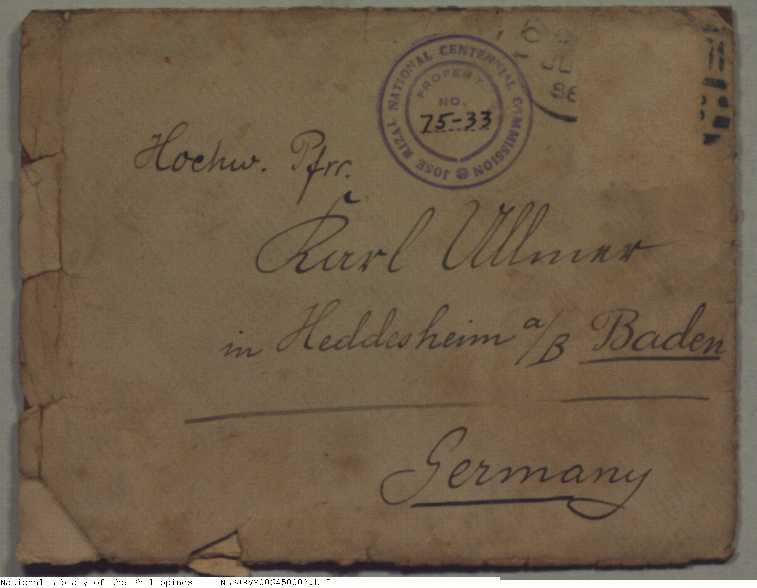 JOSE RIZAL NATIONAL CENTENNIAL COMMISSION
PROPERTY
NO.
75-33
Hochw. Pfrr.
Karl Ullmer
in Heddesheim a/B Baden
Germany
National Library of the Philippines